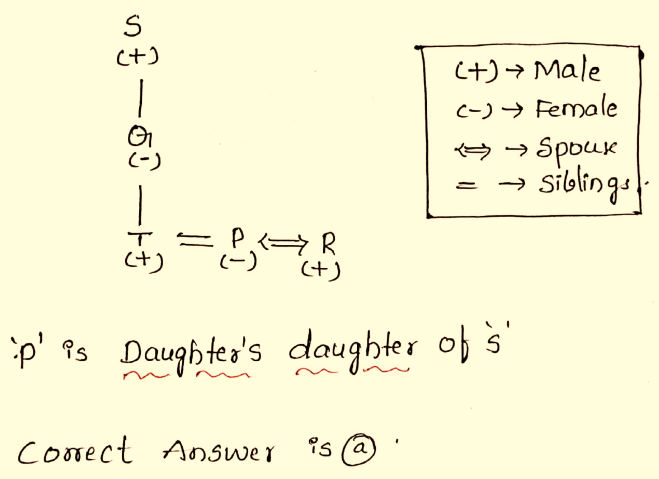 S
(+)
(+) → Male
(-) → Female
⇔ → Spouse
= → Siblings.
Q
(-)
T = P ⇔ R
(+) (-) (+)
'p' is Daughter's daughter of 's'
Correct Answer is (a).